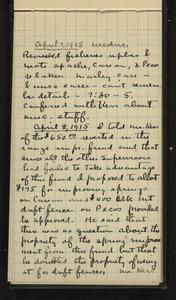 April 7, 1915 Wednes.
Revised figures uplers &
most apache, Carson, & Pecos
stakes. Hurley case -
& misc cases - cant remem-
ber details - 7:30 - 5.
Conferred with Kerr about
misc. stuff.
April 8, 1915 I told number
of the $650 allotted in the
range impr. fund and that
since all the other Supervisors
had failed to take advantage
of the fund I proposed to allot
$175 for improving springs
on Carson and $400 blk but
drift fence on Pecos provided
he approved. He said that
there was no question about the
propriety of the spring improve-
ment from this fund but that
he doubted the propriety of using
it for drift fences. Mr. Kerr